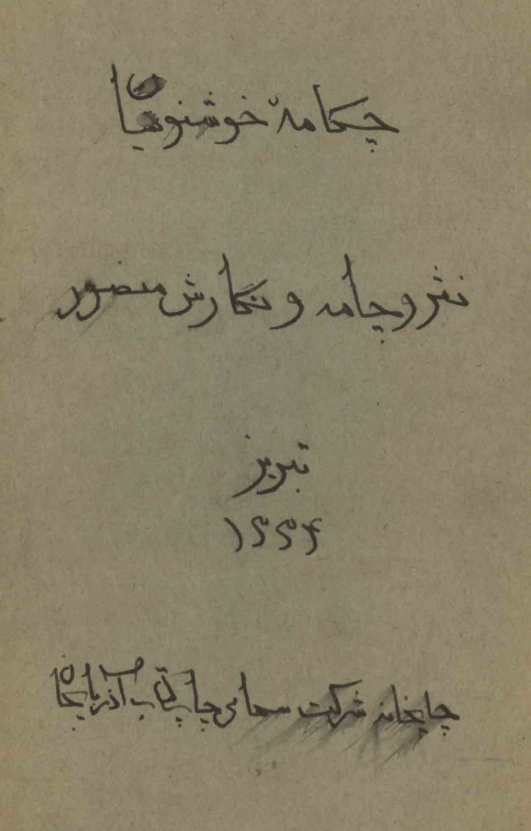 چکامهٔ خوشنویسان
نثر و چامه و نگارش منصور
تبریز
۱۳۳۴
چاپخانه شرکت سهامی چاپ کتاب آذربایجان